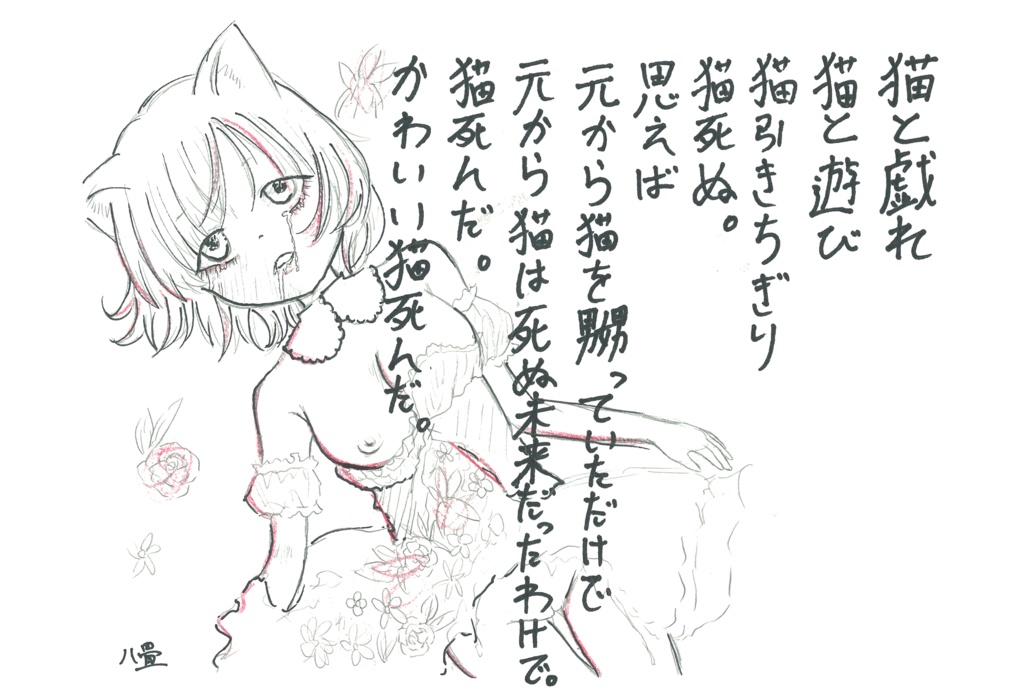 猫と戯れ
猫と遊び
猫引きちぎり
猫死ぬ。
思えば
元から猫を嬲っていただけで
元から猫は死ぬ未来だったわけで。
猫死んだ。
かわいい猫死んだ。
八畳